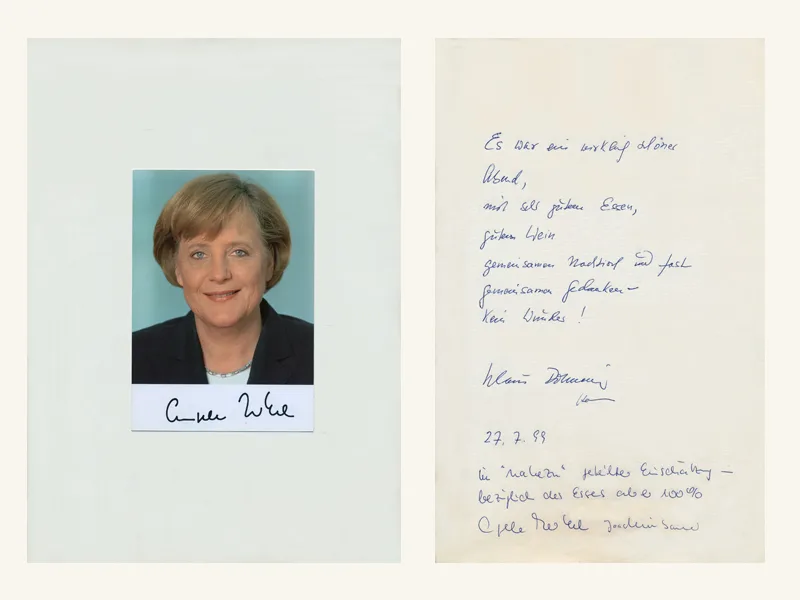 Angela Merkel
Es war ein wirklich schöner
Abend,
mit sehr gutem Essen,
gutem Wein
gemeinsamem Nachtisch und fast
gemeinsamen Gedanken –
Kein Wunder!
Klaus
27.7.99
in "nahezu" geteilter Einschätzung –
bezüglich des Essens aber 100%
Angela Merkel Joachim Sauer